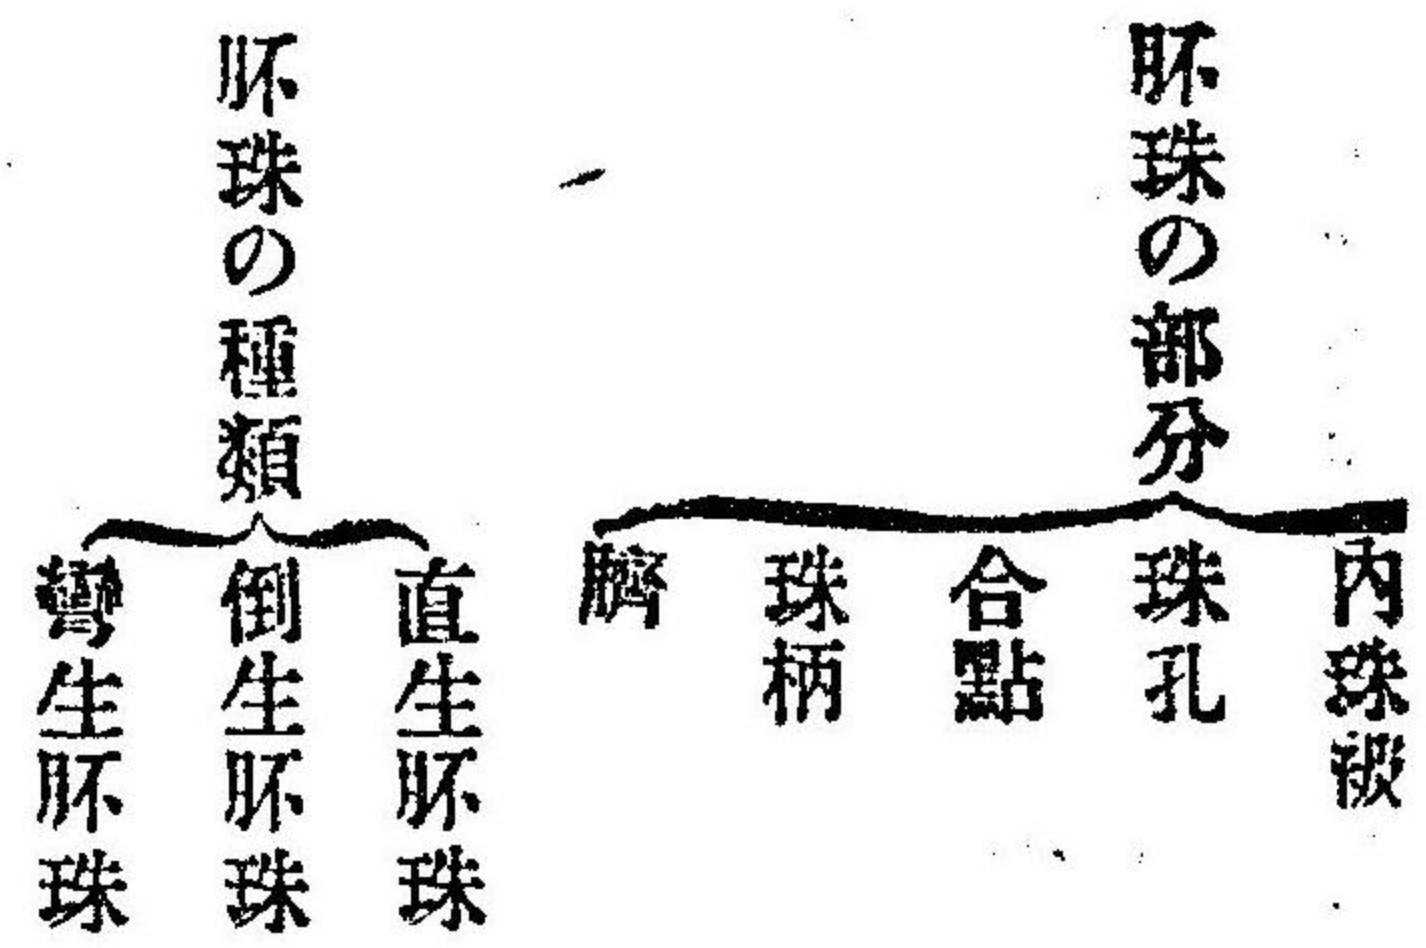 胚珠の部分
内珠被
珠孔
合點
珠柄
臍
胚珠の種類
直生胚珠
倒生胚珠
彎生胚珠